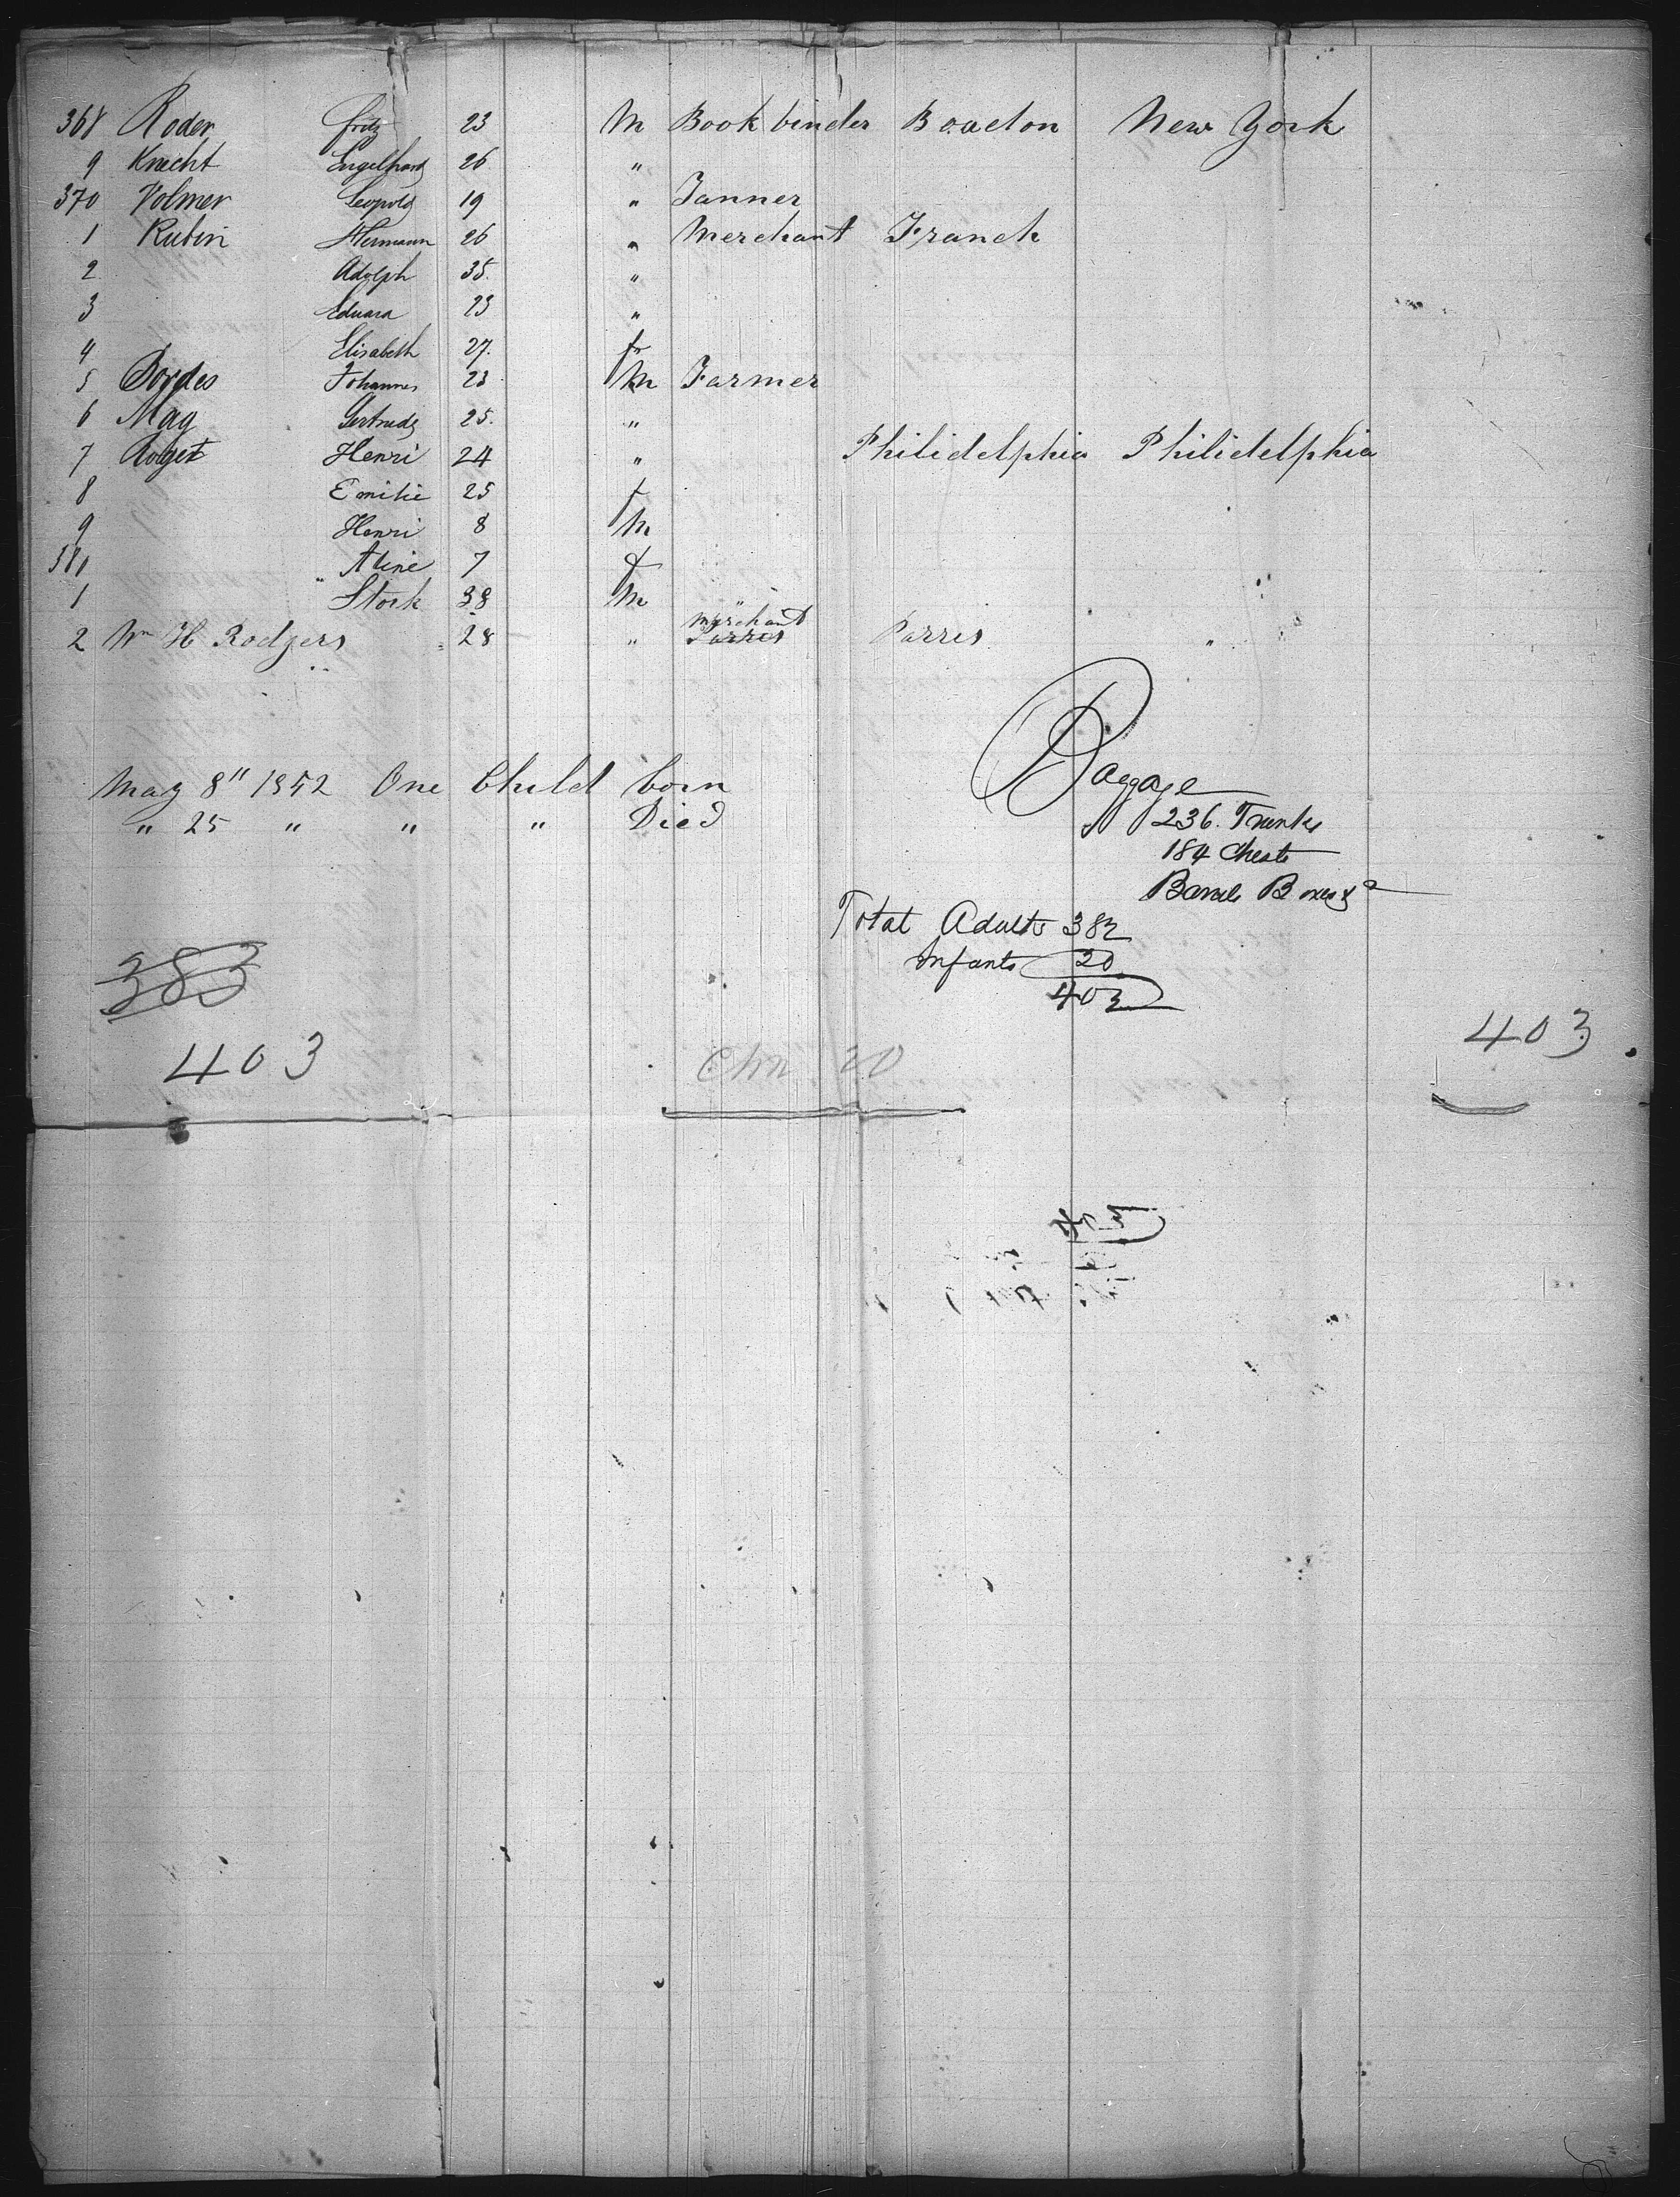 368 Roder Fritz 23 M Book binder Boadon New York
9 Knecht Engelhard 26 "
370 Volmer Leopold 19 " Tanner
1 Rubin Hermann 26 " Merchant Franch
2 Adolph 35. "
3 Eduard 23 "
4 Elisabeth 27. f
5 Johannes 23 M Farmer
6 May Gertrude 25. "
7 Henri 24 " Philidelphia Philidelphia
8 Emilie 25 f
9 Henri 8 M
" Aline 7 f
1 Stork 38 M
merchant
2 Wm H Rodgers 28 " Parres Parris "
Baggage
May 8" 1852 One Child born
" 25 " " " Died
236. Trunks
184 Chests
Barrels Boxes &c
Total Adults 382
Infants 20
402
383
403
403
Chn 20